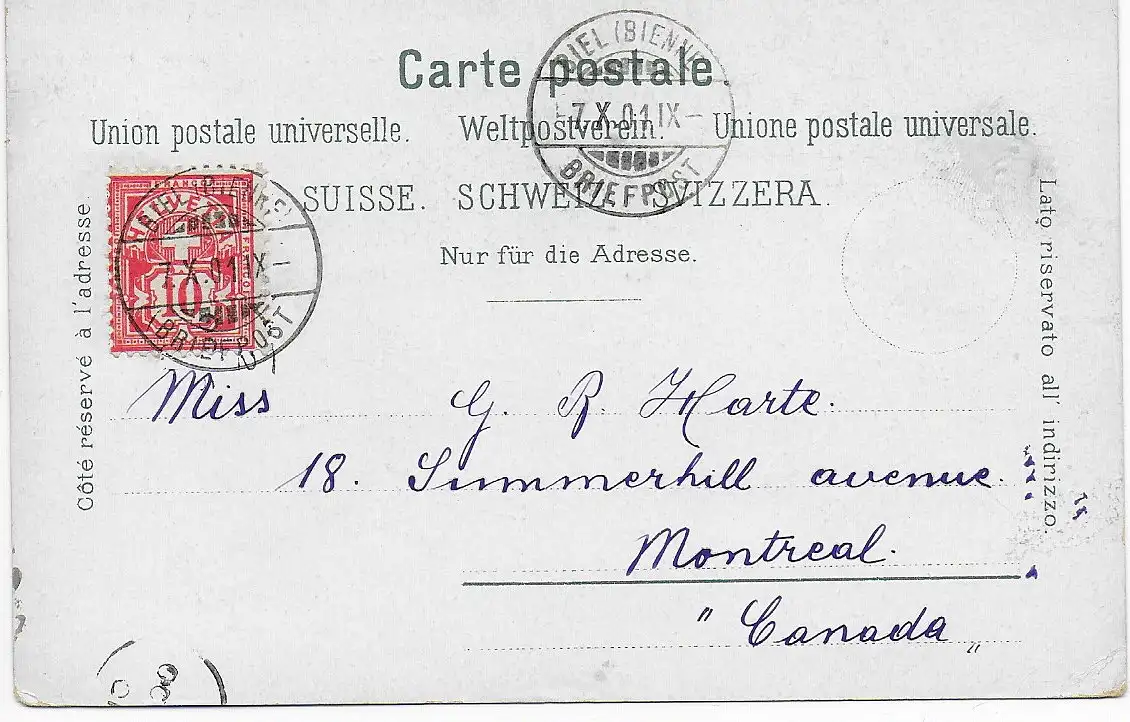 Carte postale.
BIEL (BIENNE)
7.X.01.IX-
BRIEFPOST
Union postale universelle. Weltpostverein. Unione postale universale.
SUISSE. SCHWEIZ. SVIZZERA.
Nur für die Adresse.
Côté réservé à l'adresse.
Lato riservato all' indirizzo.
FRANCO
HELVETIA
10
7.X.01.IX-
BRIEFPOST
Miss G. R. Harte.
18. Summerhill avenue.
Montreal.
" Canada "